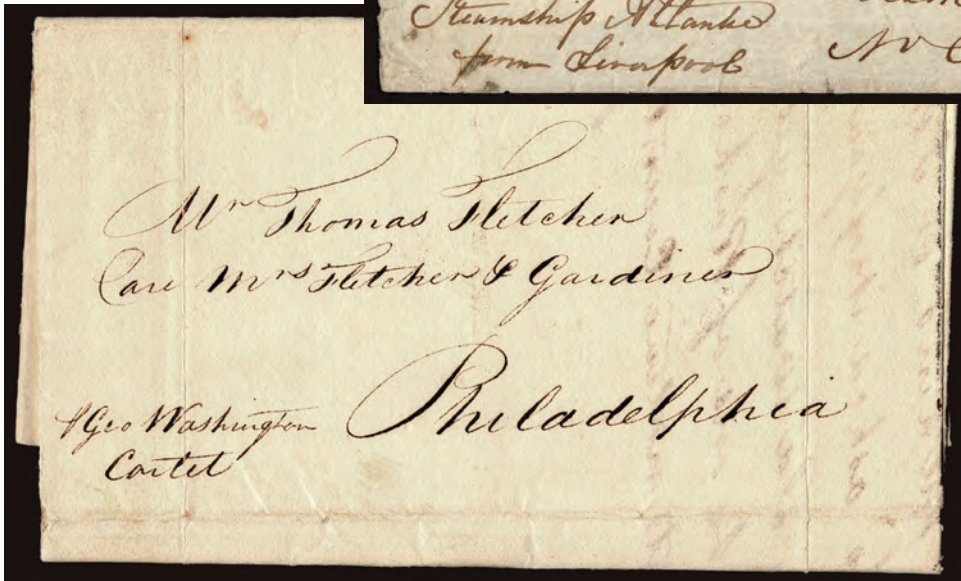 Steamship Atlantic
from Liverpool
Mr Thomas Fletcher
Care Mrs Fletcher & Gardiner
Philadelphia
Geo Washington
Cartel